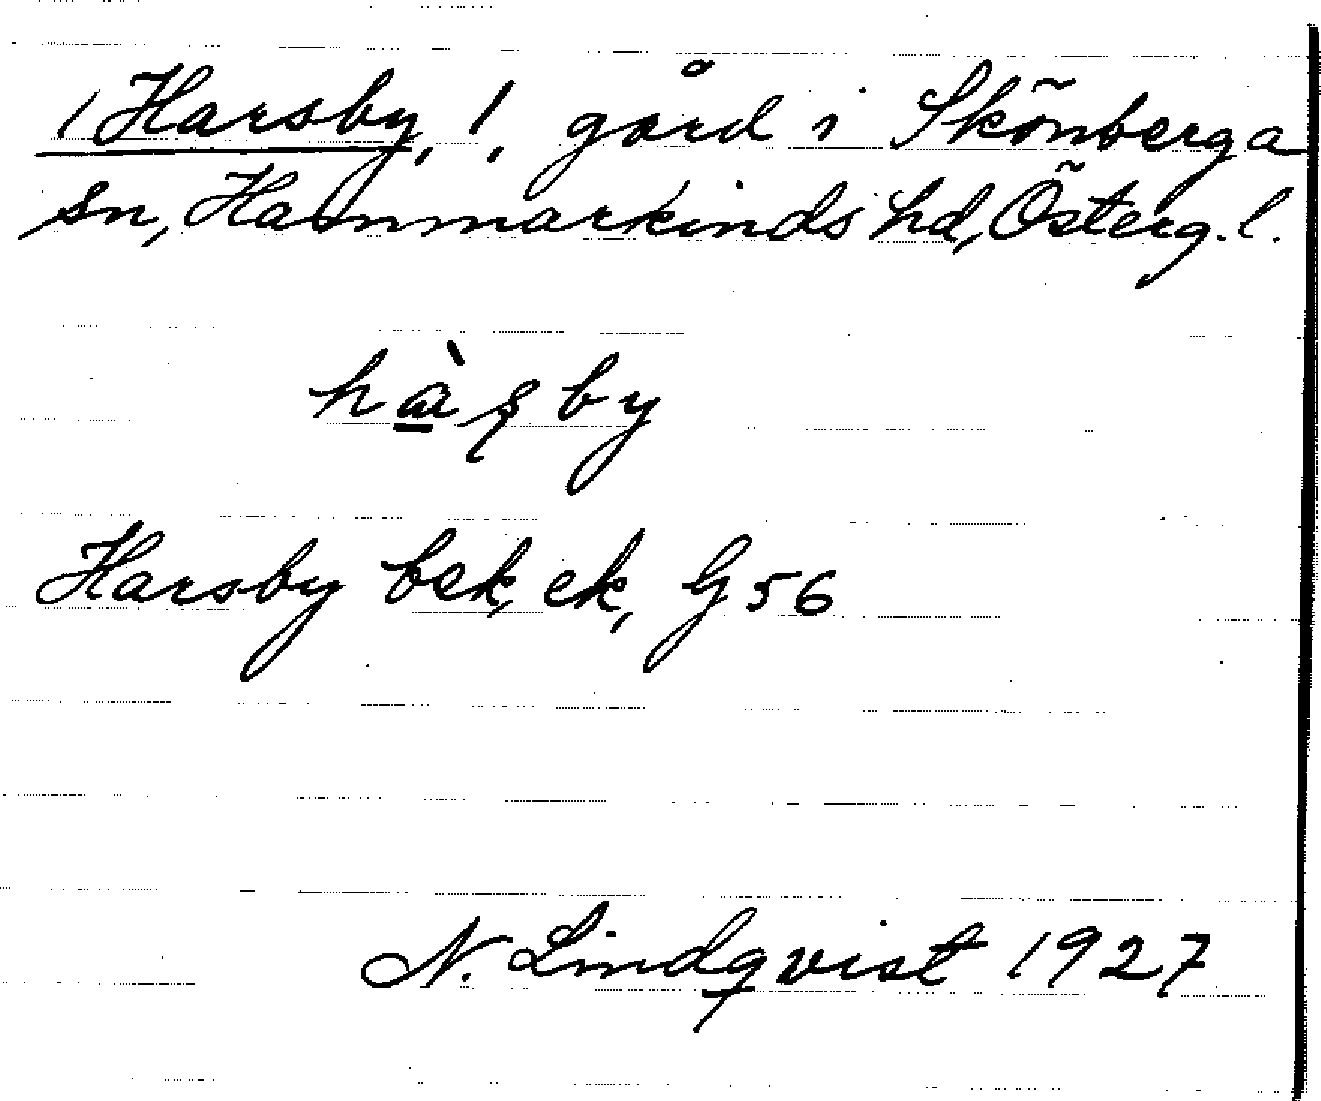 1 Harsby, !, gård i Skönberga
sn, Hammarkinds hd, Österg. l.
hàꞩby
Harsby bek, ek, G 56
N. Lindqvist 1927